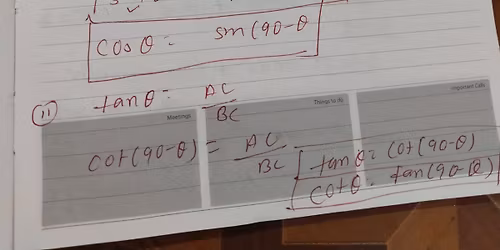 cos θ = sin(90-θ
(11) tanθ = AC/BC
Meetings Things to do Important Calls
cot(90-θ) = AC/BC
tanθ = cot(90-θ)
cotθ = tan(90-θ)